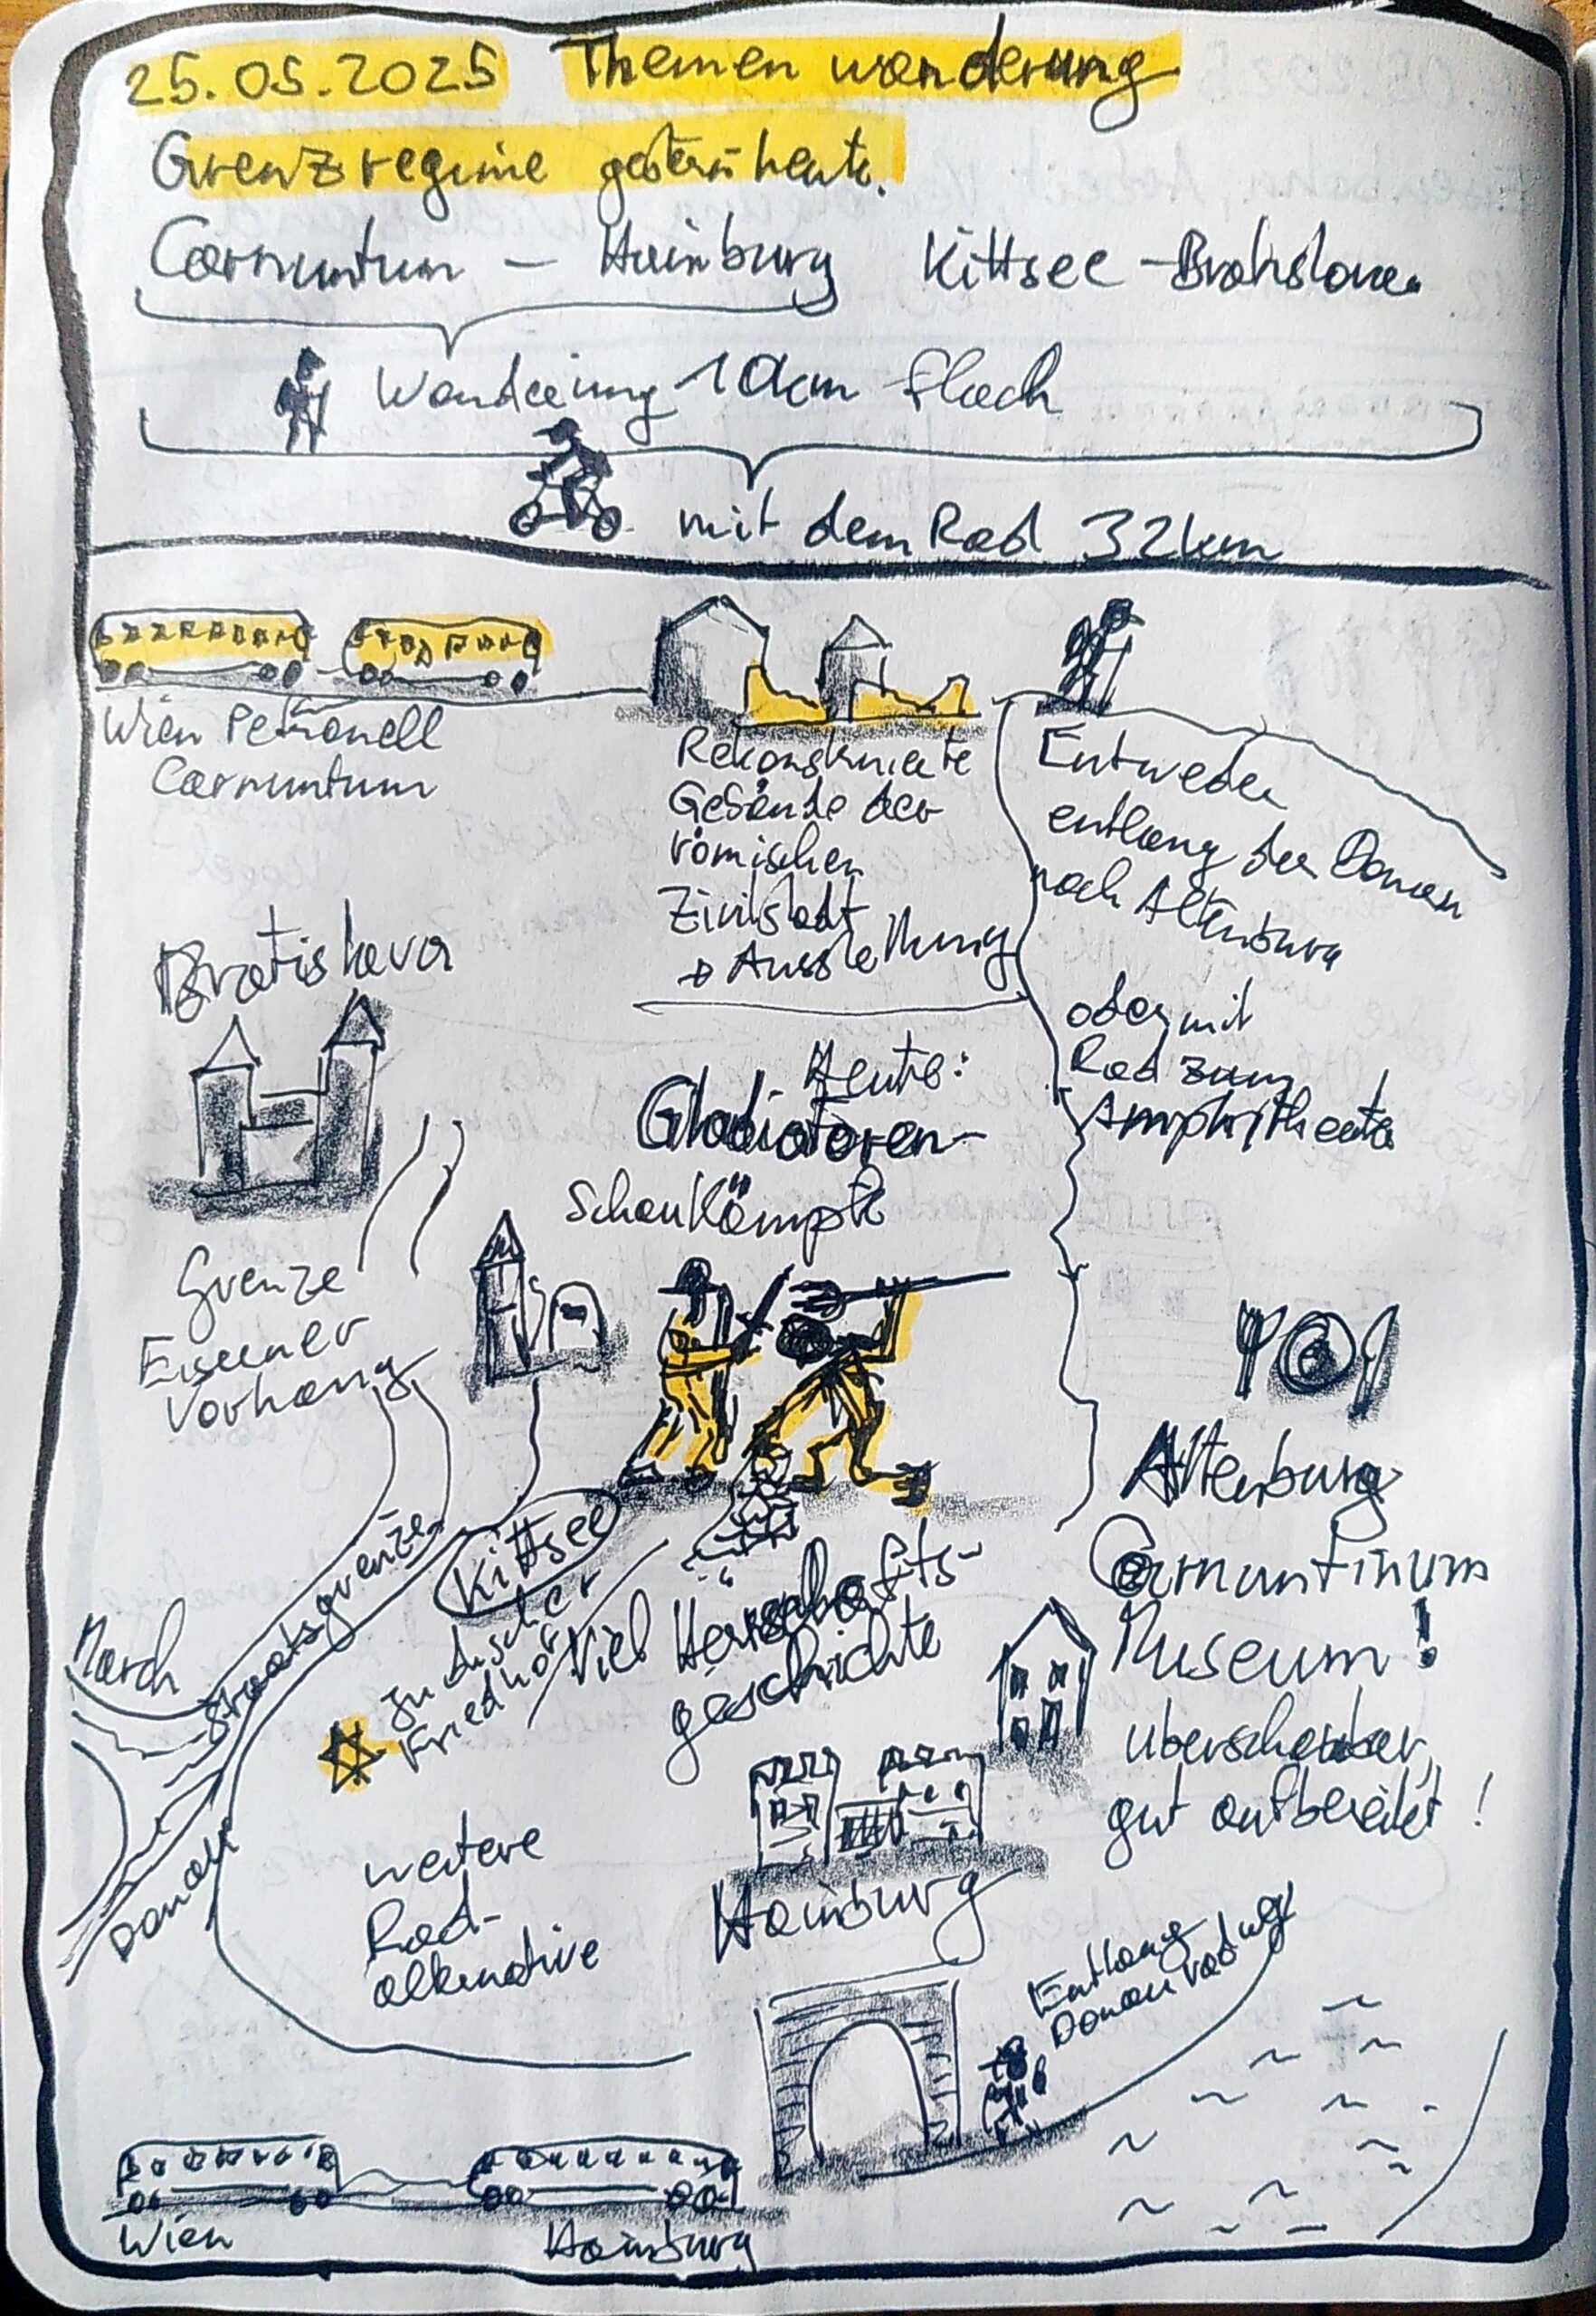 25.05.2025 Themenwanderung
Grenzregime gestern heute.
Carnuntum - Hainburg Kittsee - Bratislava
Wanderung 10km flach
mit dem Rad 32km
Wien Petronell
Carnuntum
Rekonstruierte
Gebäude der
römischen
Zivilstadt
+ Ausstellung
Entweder
entlang der Donau
nach Altenburg
oder mit
Rad zum
Amphitheater
Bratislava
Heute:
Gladiatoren-
Schaukämpfe
Grenze
Eiserner
Vorhang
Altenburg
Carnuntinum
Museum!
überschaubar,
gut aufbereitet!
Kittsee
Staatsgrenze
March
Donau
Jüdischer
Friedhof
Viel Herrschafts-
geschichte
weitere
Rad-
alternative
Hainburg
Entlang
Donauradweg
Wien
Hainburg